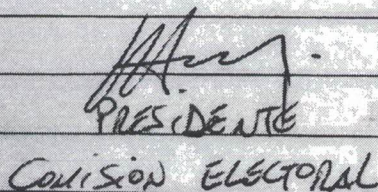 PRESIDENTE
COMISIÓN ELECTORAL